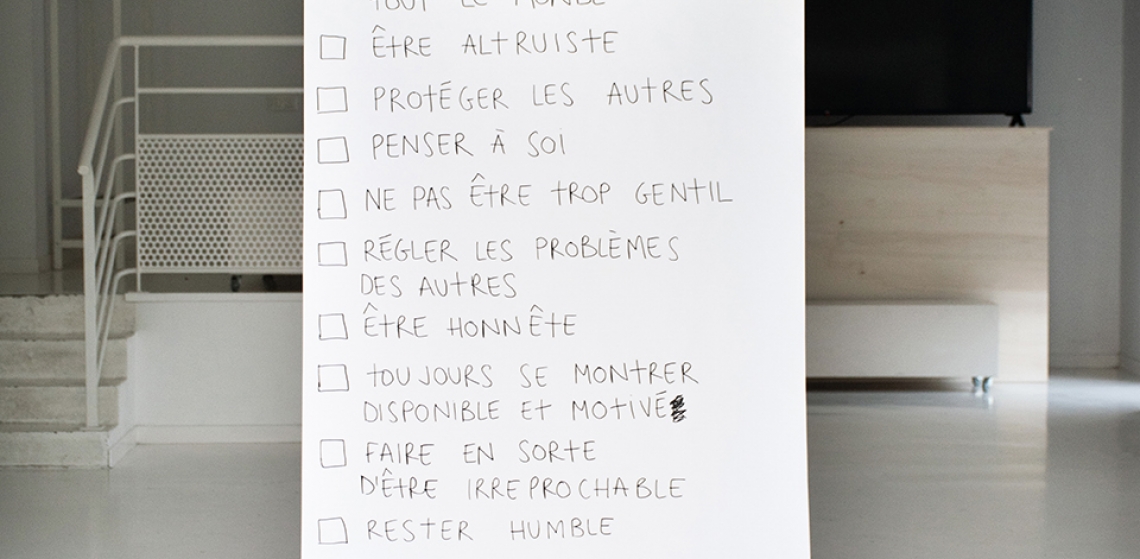 TOUT LE MONDE
ÊTRE ALTRUISTE
PROTÉGER LES AUTRES
PENSER À SOI
NE PAS ÊTRE TROP GENTIL
RÉGLER LES PROBLÈMES
DES AUTRES
ÊTRE HONNÊTE
TOUJOURS SE MONTRER
DISPONIBLE ET MOTIVÉ
FAIRE EN SORTE
D'ÊTRE IRREPROCHABLE
RESTER HUMBLE